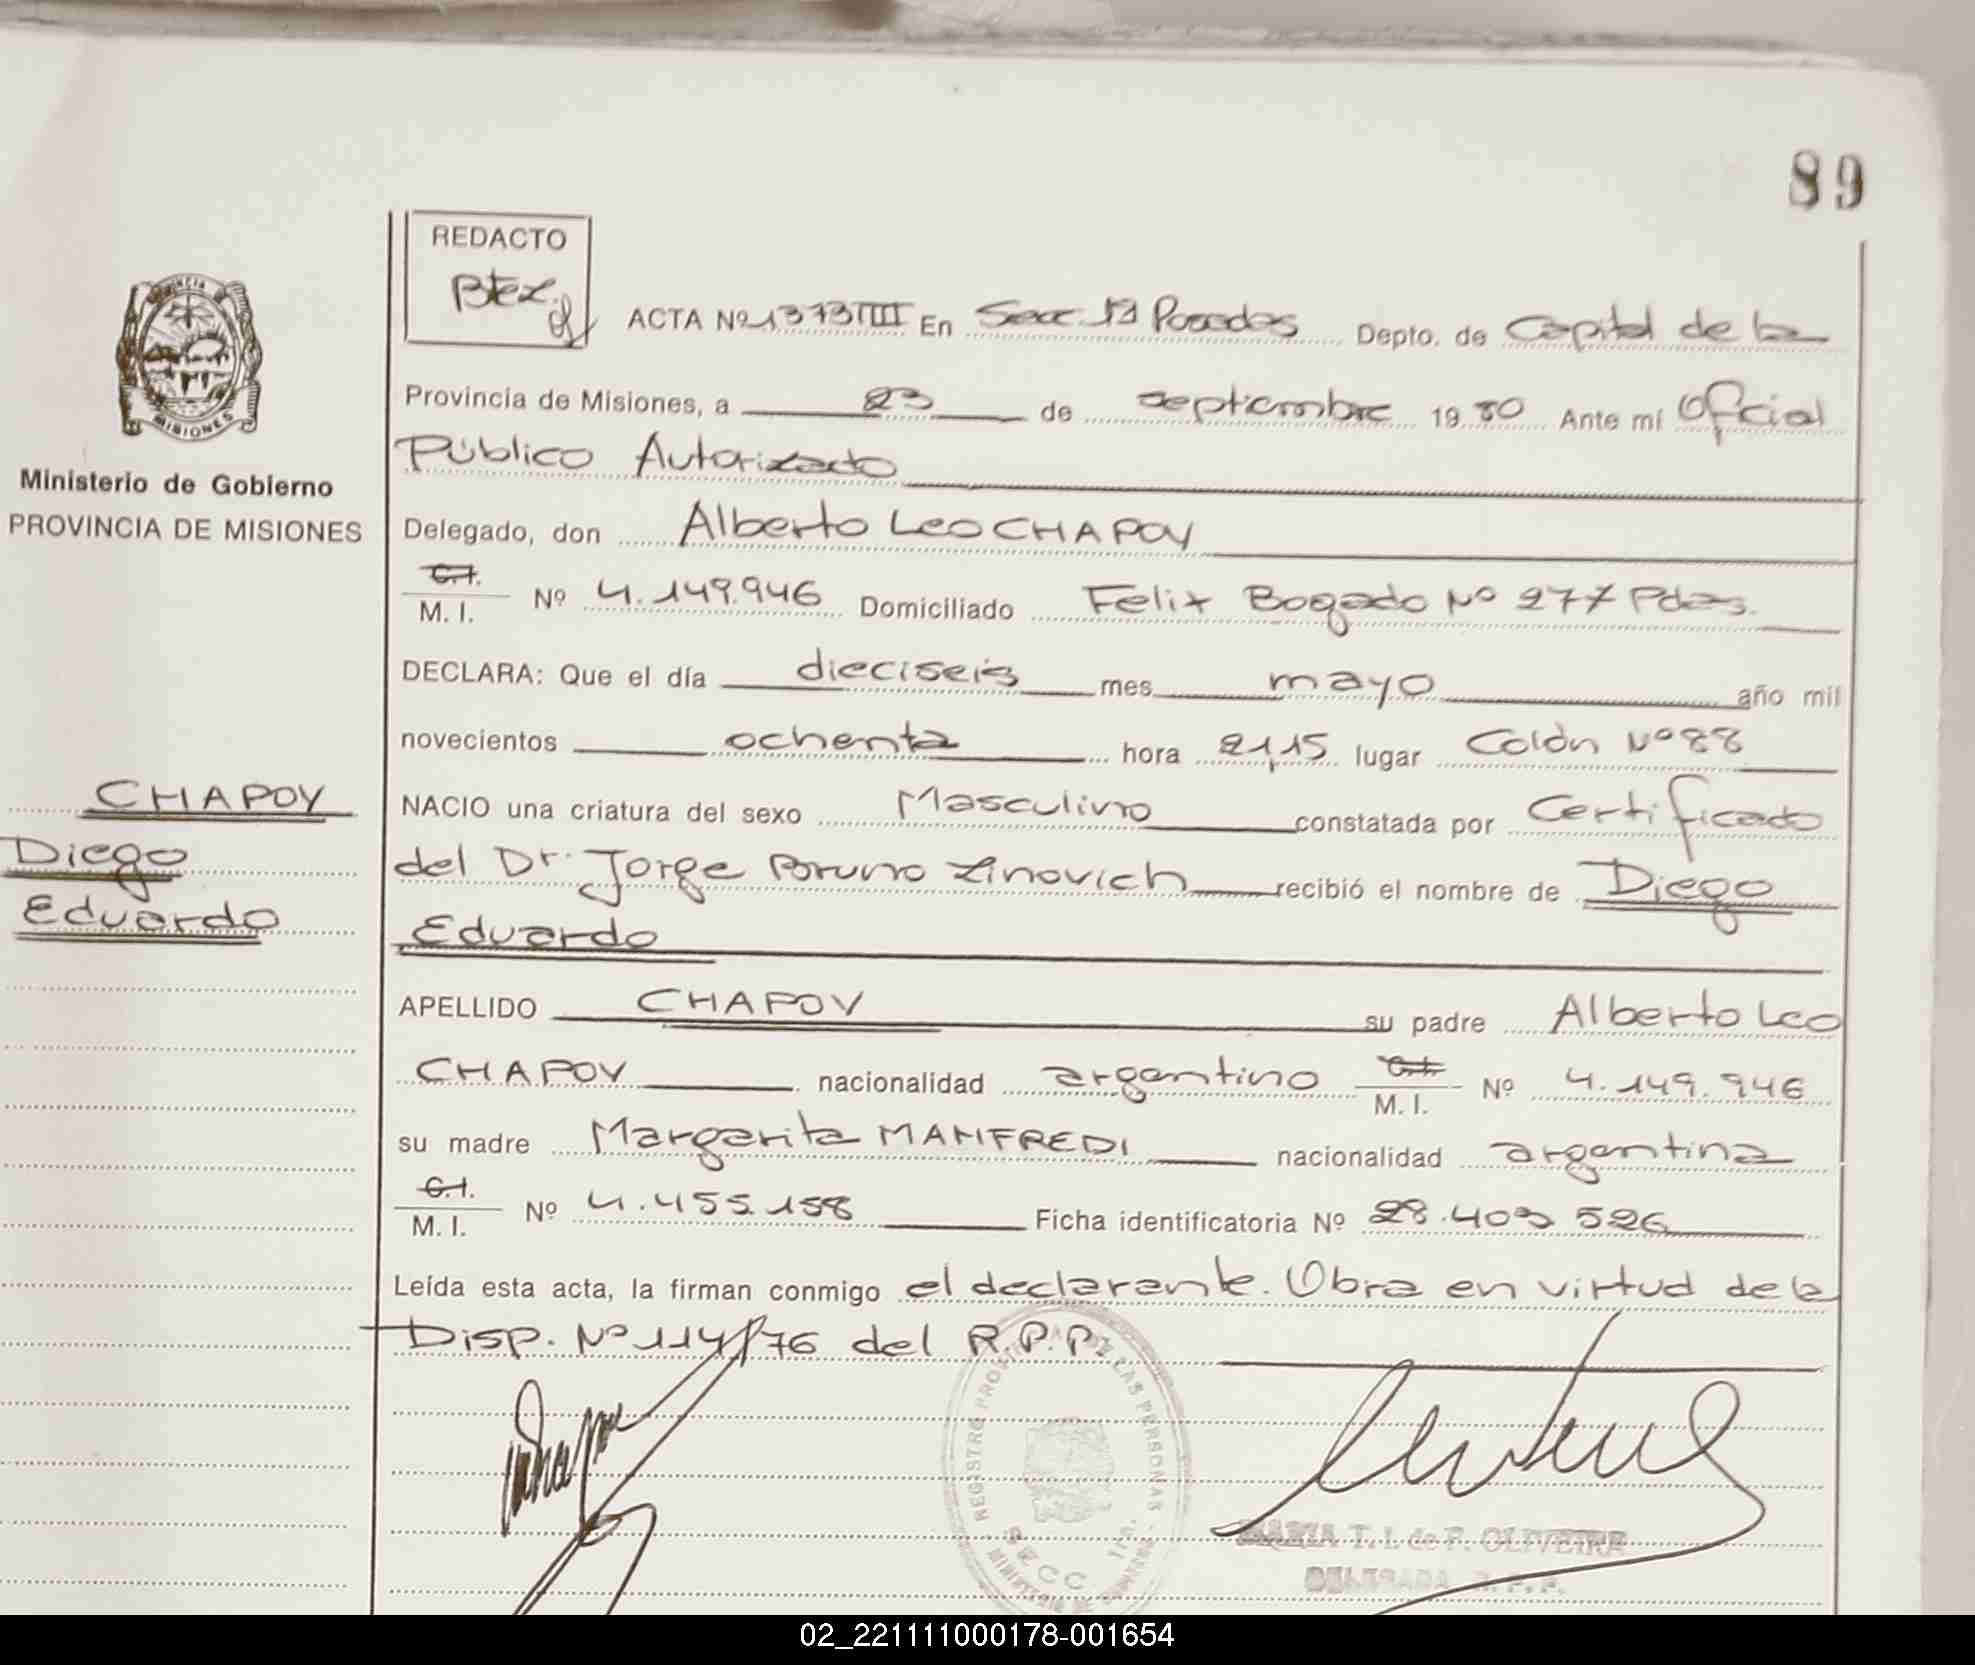 89
REDACTO
Btez.
ACTA Nº 1373 TIII En Secc. 1ª Posadas Depto. de Capital de la
Provincia de Misiones, a 23 de septiembre 1980 Ante mí Oficial
Público Autorizado
Delegado, don Alberto Leo CHAPOY
C.I.
M. I. Nº 4.149.946 Domiciliado Felix Bogado Nº 277 Pdas.
DECLARA: Que el día dieciseis mes mayo año mil
novecientos ochenta hora 21,15 lugar Colón Nº 88
NACIO una criatura del sexo Masculino constatada por Certificado
del Dr. Jorge Bruno Zinovich recibió el nombre de Diego
Eduardo
APELLIDO CHAPOY su padre Alberto Leo
CHAPOY nacionalidad argentino C.I.
M. I. Nº 4.149.946
su madre Margarita MANFREDI nacionalidad argentina
C.I.
M. I. Nº 4.455.158 Ficha identificatoria Nº 28.409 526
Leída esta acta, la firman conmigo el declarante. Obra en virtud de la
Disp. Nº 114/76 del R.P.P.
PROVINCIA
MISIONES
Ministerio de Gobierno
PROVINCIA DE MISIONES
CHAPOY
Diego
Eduardo
REGISTRO PROVINCIAL DE LAS PERSONAS
SECC 1ra.
MINISTERIO DE GOBIERNO
MARIA T. I. de F. OLIVEIRA
DELEGADA R. P. P.
02_221111000178-001654